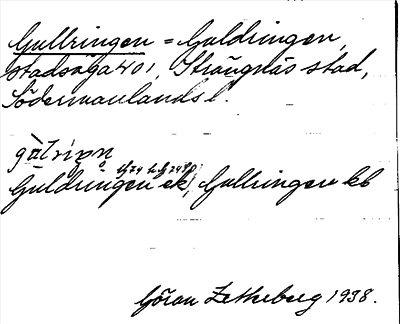 Gullringen = Guldringen,
stadsäga 401, Strängnäs stad,
Södermanlands l.
Guldringen ek, Gullringen kb
Göran Zetheberg 1938.